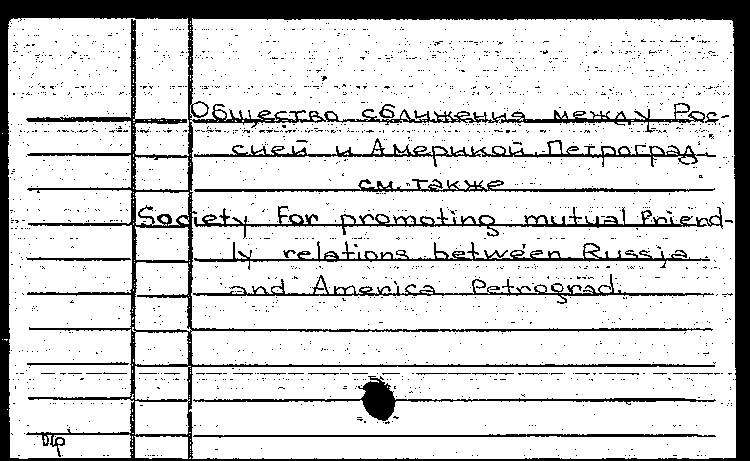 Общество сближения между Рос-
сией и Америкой. Петроград.
см. также
Society For promoting mutual Friend-
ly relations between Russia
and America Petrograd.